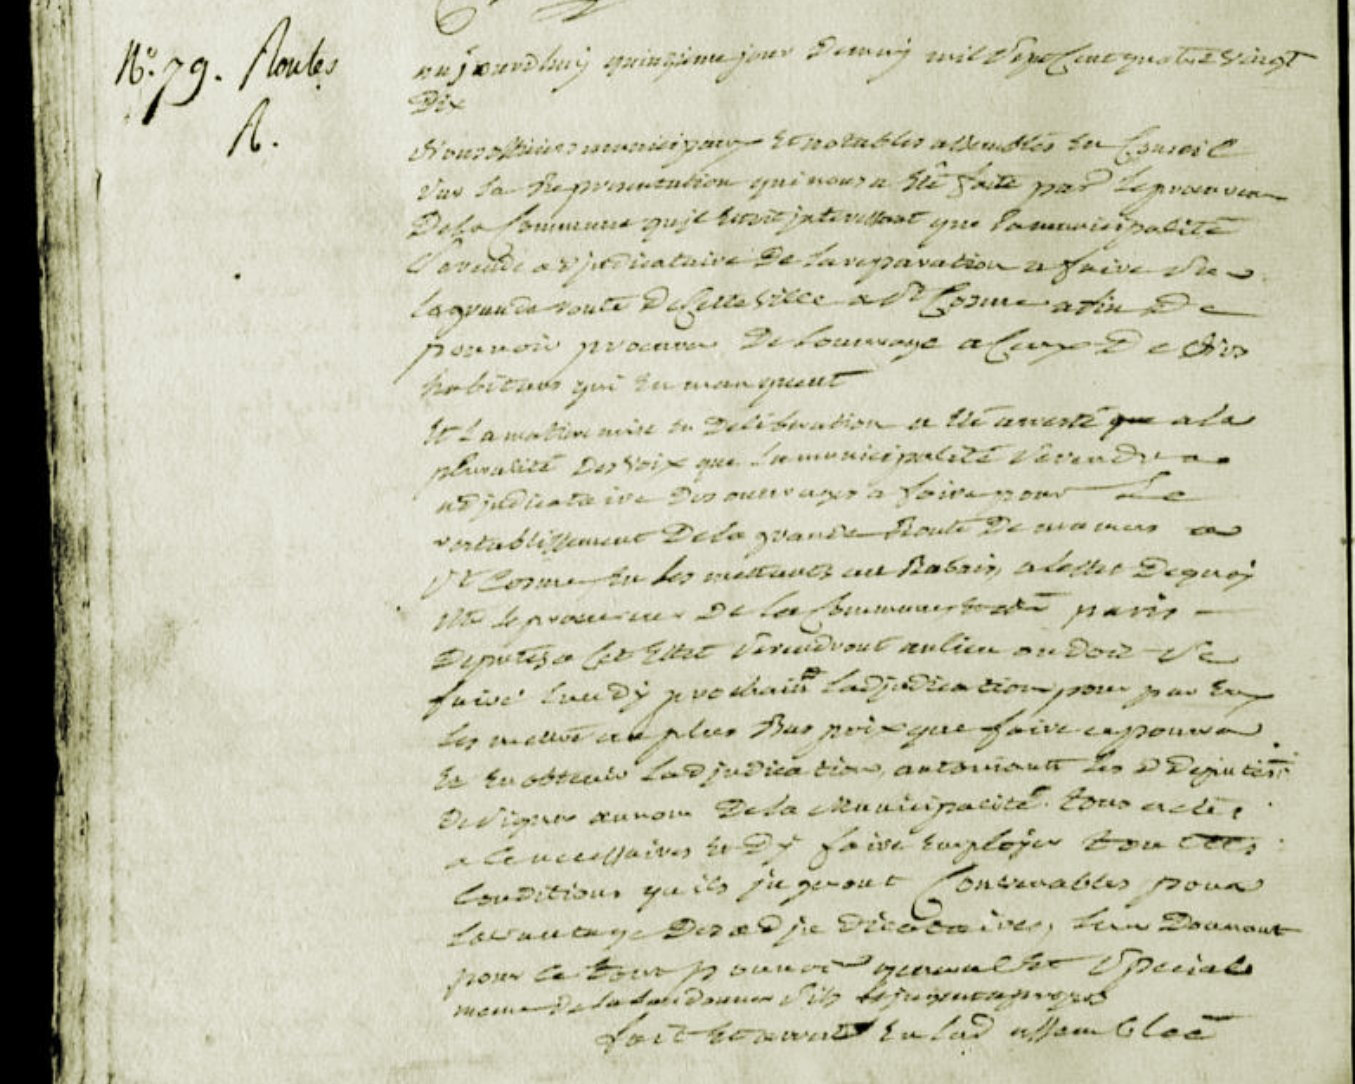 N.° 79. Routes
A.
aujourdhuy quinzieme jour de may mil sept Cent quatre vingt
Dix
Nous officiers municipaux Et notables assemblés En Conseil
sur la Representation qui nous a Eté faite par le procureur
De la Commune qu'il Seroit interessant que la municipalité
Se rendit adjudicataire De la reparation a faire sur
la grande route De Cette Ville a St Cosme afin De
pouvoir procurer De Louvrage a Ceux De Nos
habitans qui En manquent
Et La matiere mise En Deliberation a Eté arresté que a la
pluralité Des Voix que La municipalité Se rendra
adjudicataire Des ouvrages a faire pour Le
retablissement De la grande Route De mamers a
St Cosme En Les mettant au Rabais, a Leffet Dequoy
Mr Le procureur De la Commune Et paris
Deputés a Cet Effet Se rendront au lieu ou Doit Se
faire Lundy prochain Ladjudication pour par Eux
Les mettre au plus Bas prix que faire ce pourra
Et En obtenir Ladjudication, autorisant Les D Deputés
De Signer au nom De la Municipalité tous actes
a Ce necessaires Et Dy faire Employer touttes
Conditions qu ils jugeront Convenables pour
Lavantage Des adjudicataires, Leur Donnant
pour Ce tout pouvoir general Et Special
meme De La Sils Le jugent apropos
fait Et areté En Lad assemblée